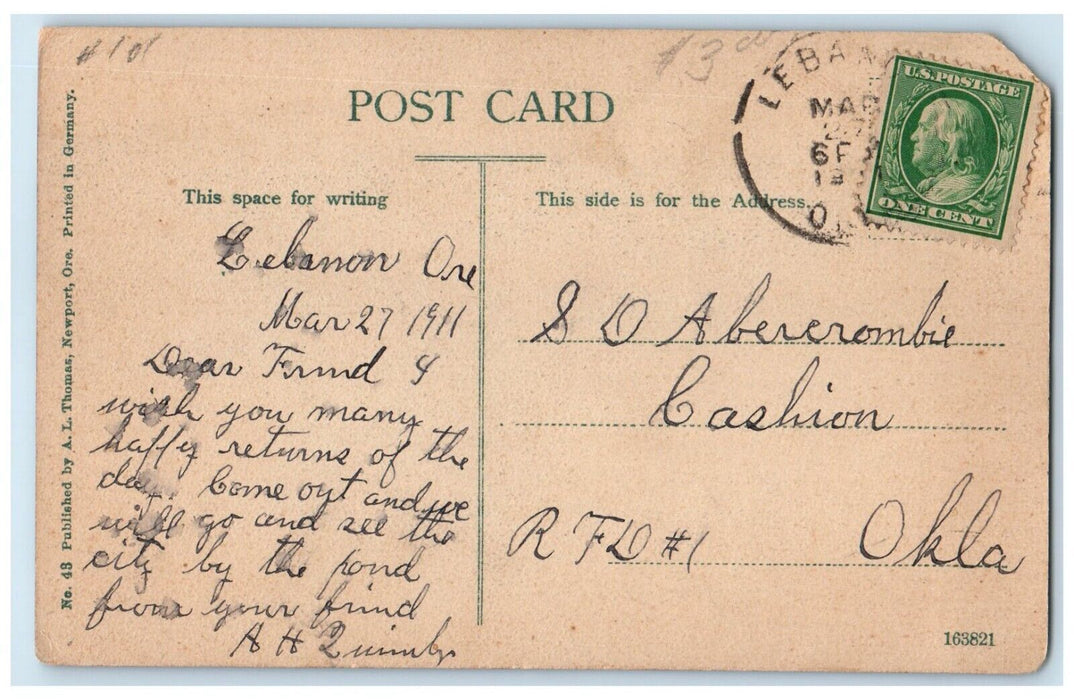 # 101
$3
POST CARD
LEBAN
MAR
27
6P
19
U.S. POSTAGE
ONE CENT
This space for writing
This side is for the Address.
Lebanon Ore
Mar 27 1911
Dear Frind I
wish you many
happy returns of the
day. Come oyt and we
will go and see the
city by the pond
from your frind
A H Quimby
S D Abercrombie
Cashion
RFD #1 Okla
No. 43 Published by A. L. Thomas, Newport, Ore. Printed in Germany.
163821